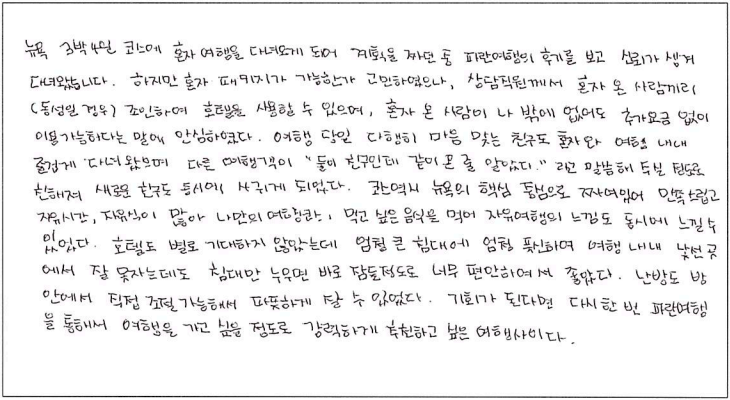 뉴욕 3박4일 코스에 혼자 여행을 다녀오게 되어 계획을 짜던 중 파란여행의 후기를 보고 신뢰가 생겨
다녀왔습니다. 하지만 혼자 패키지가 가능한가 고민하였으나, 상담직원께서 혼자 온 사람끼리
(동성일 경우) 조인하여 호텔을 사용할 수 있으며, 혼자 온 사람이 나 밖에 없어도 추가요금 없이
이용가능하다는 말에 안심하였다. 여행 당일 다행히 마음 맞는 친구도 혼자와 여행 내내
즐겁게 다녀왔으며 다른 여행객이 "둘이 친구인데 같이 온 줄 알았다." 라고 말씀해 주실 정도로
친해져 새로운 친구도 동시에 사귀게 되었다. 코스역시 뉴욕의 핵심 통점으로 짜여있어 만족스럽고
자유시간, 자유식이 많아 나만의 여행코스, 먹고 싶은 음식을 먹어 자유여행의 느낌도 동시에 느낄 수
있었다. 호텔도 별로 기대하지 않았는데 엄청 큰 침대에 엄청 푹신하여 여행 내내 낯선 곳
에서 잘 못자는데도 침대만 누우면 바로 잠들정도로 너무 편안하여서 좋았다. 난방도 방
안에서 직접 조절가능해서 따뜻하게 잘 수 있었다. 기회가 된다면 다시 한 번 파란여행
을 통해서 여행을 가고 싶을 정도로 강력하게 추천하고 싶은 여행사이다.